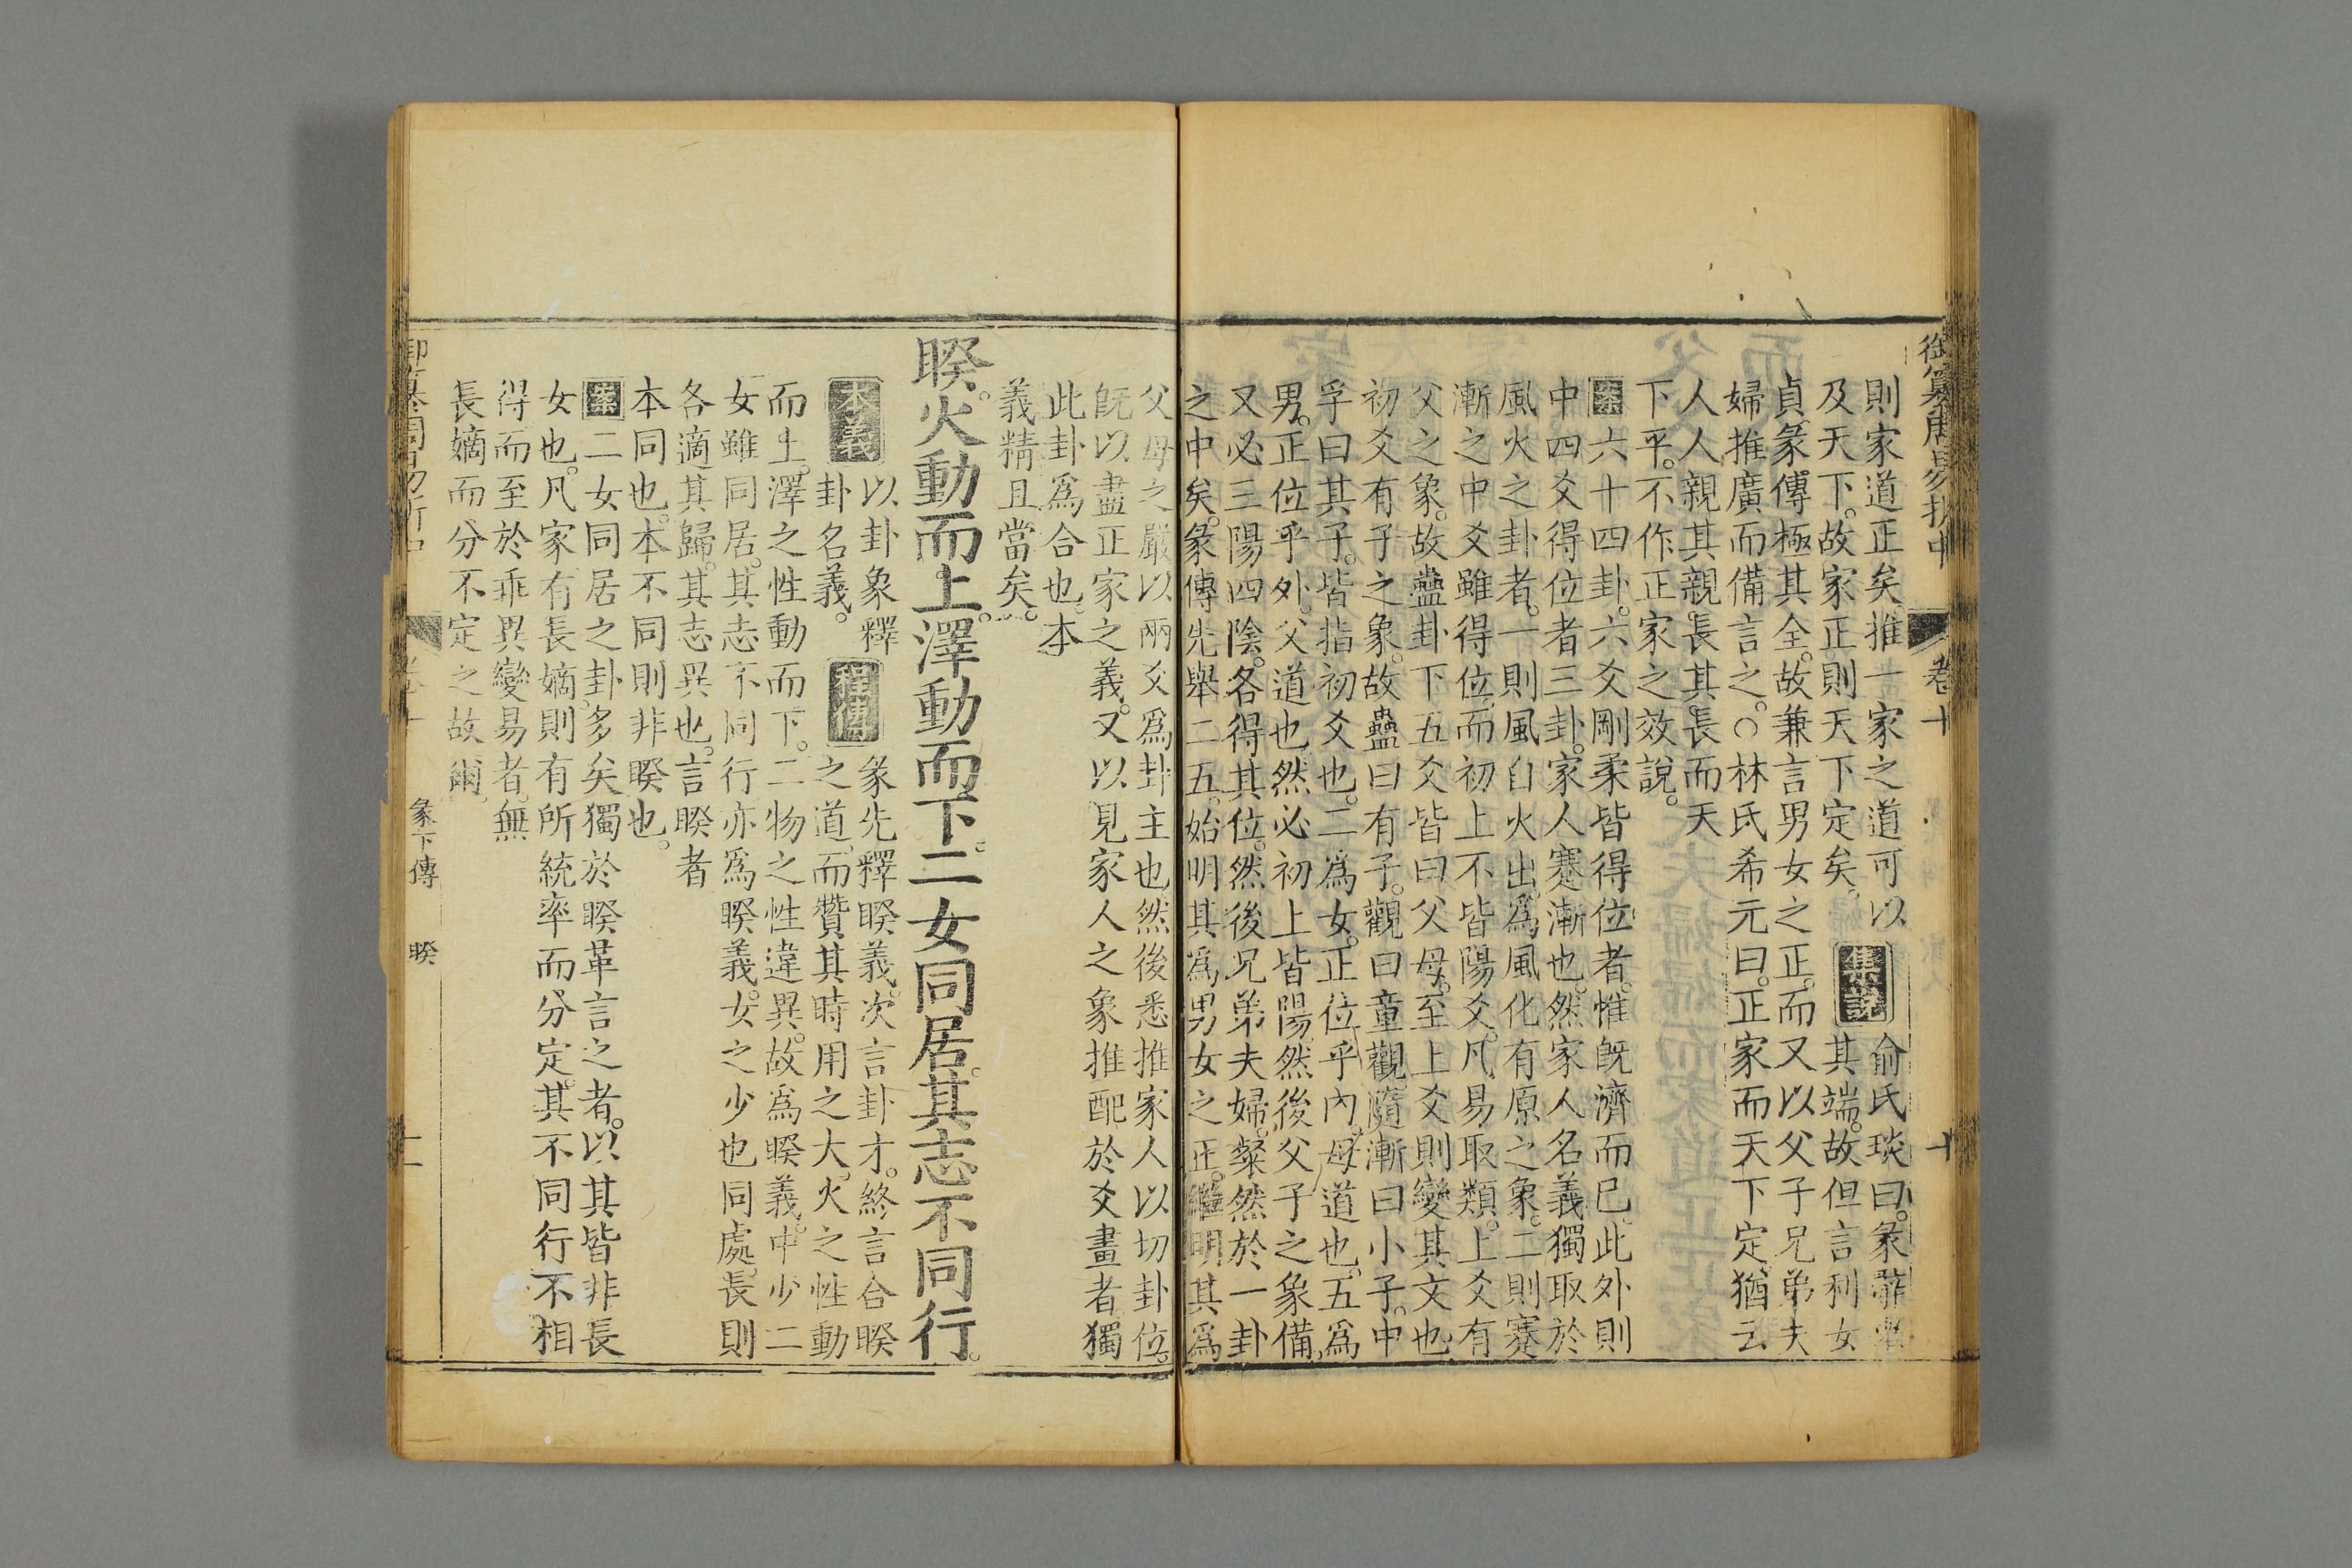 御纂周易折中 卷十 十
則家道正矣推一家之道可以
及天下。故家正則天下定矣。集說俞氏琰曰。彖辭舉其端。故但言利女
貞。彖傳極其全。故兼言男女之正。而又以父子兄弟夫
婦推廣而備言之。○林氏希元曰。正家而天下定。猶云
人人親其親。長其長而天
下平。不作正家之效說。
案六十四卦。六爻剛柔皆得位者。惟旣濟而已。此外則
中四爻得位者三卦。家人蹇漸也。然家人名義獨取於
風火之卦者。一則風自火出。爲風化有原之象。二則蹇
漸之中爻雖得位。而初上不皆陽爻。凡易取類。上爻有
父之象。故蠱卦下五爻皆曰父母。至上爻則變其文也。
初爻有子之象。故蠱曰有子。觀曰童觀。隨漸曰小子。中
孚曰其子。皆指初爻也。二爲女。正位乎內。母道也。五爲
男。正位乎外。父道也。然必初上皆陽。然後父子之象備。
又必三陽四陰。各得其位。然後兄弟夫婦。粲然於一卦
之中矣。彖傳先舉二五。始明其爲男女之正。繼明其爲
父母之嚴。以兩爻爲卦主也。然後悉推家人以切卦位。
旣以盡正家之義。又以見家人之象。推配於爻畫者。獨
此卦爲合也。本
義精且當矣。
睽。火動而上。澤動而下。二女同居。其志不同行。
本義以卦象釋卦名義。程傳彖先釋睽義。次言卦才。終言合睽
之道。而贊其時用之大。火之性動
而上。澤之性動而下。二物之性違異。故爲睽義。中少二
女雖同居。其志不同行。亦爲睽義。女之少也同處。長則
各適其歸。其志異也。言睽者
本同也。本不同則非睽也。
案二女同居之卦多矣。獨於睽革言之者。以其皆非長
女也。凡家有長嫡。則有所統率而分定。其不同行不相
得而至於乖異變易者。無
長嫡而分不定之故爾。
御纂周易折中 卷十 彖下傳 睽 十一